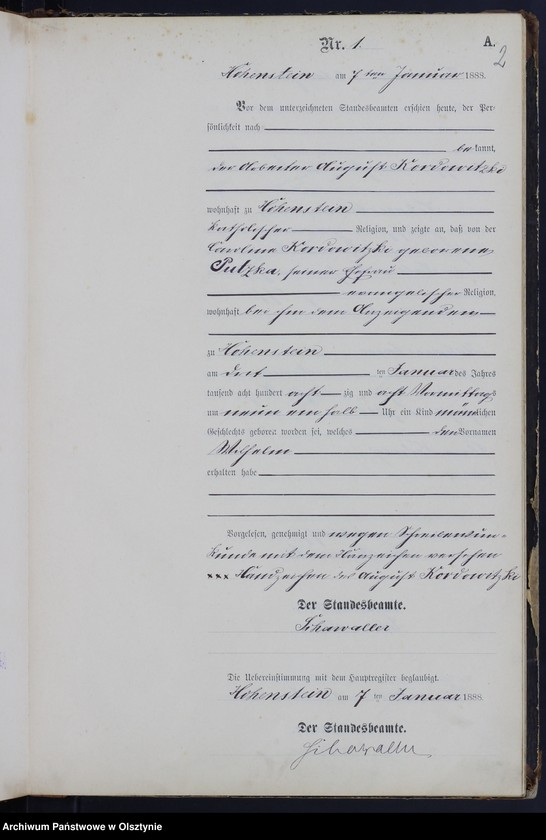 Nr. 1.
A.
2
Hohenstein am 7 ten Januar 1888.
Vor dem unterzeichneten Standesbeamten erschien heute, der Per-
sönlichkeit nach
be kannt,
der Arbeiter August Kordowitzki
wohnhaft zu Hohenstein
katholischer Religion, und zeigte an, daß von der
Caroline Kordowitzki geborene
Putzka, seiner Ehefrau
evangelischer Religion,
wohnhaft bei ihm dem Anzeigenden
zu Hohenstein
am ten Januar des Jahres
tausend acht hundert acht zig und acht Vormittags
um neun ein halb Uhr ein Kind männlichen
Geschlechts geboren worden sei, welches den Vornamen
Wilhelm
erhalten habe
Vorgelesen, genehmigt und wegen Schreibensun-
kunde mit dem Handzeichen versehen
xxx Handzeichen des August Kordowitzki
Der Standesbeamte.
Die Uebereinstimmung mit dem Hauptregister beglaubigt.
Hohenstein am 7 ten Januar 1888.
Der Standesbeamte.
Archiwum Państwowe w Olsztynie